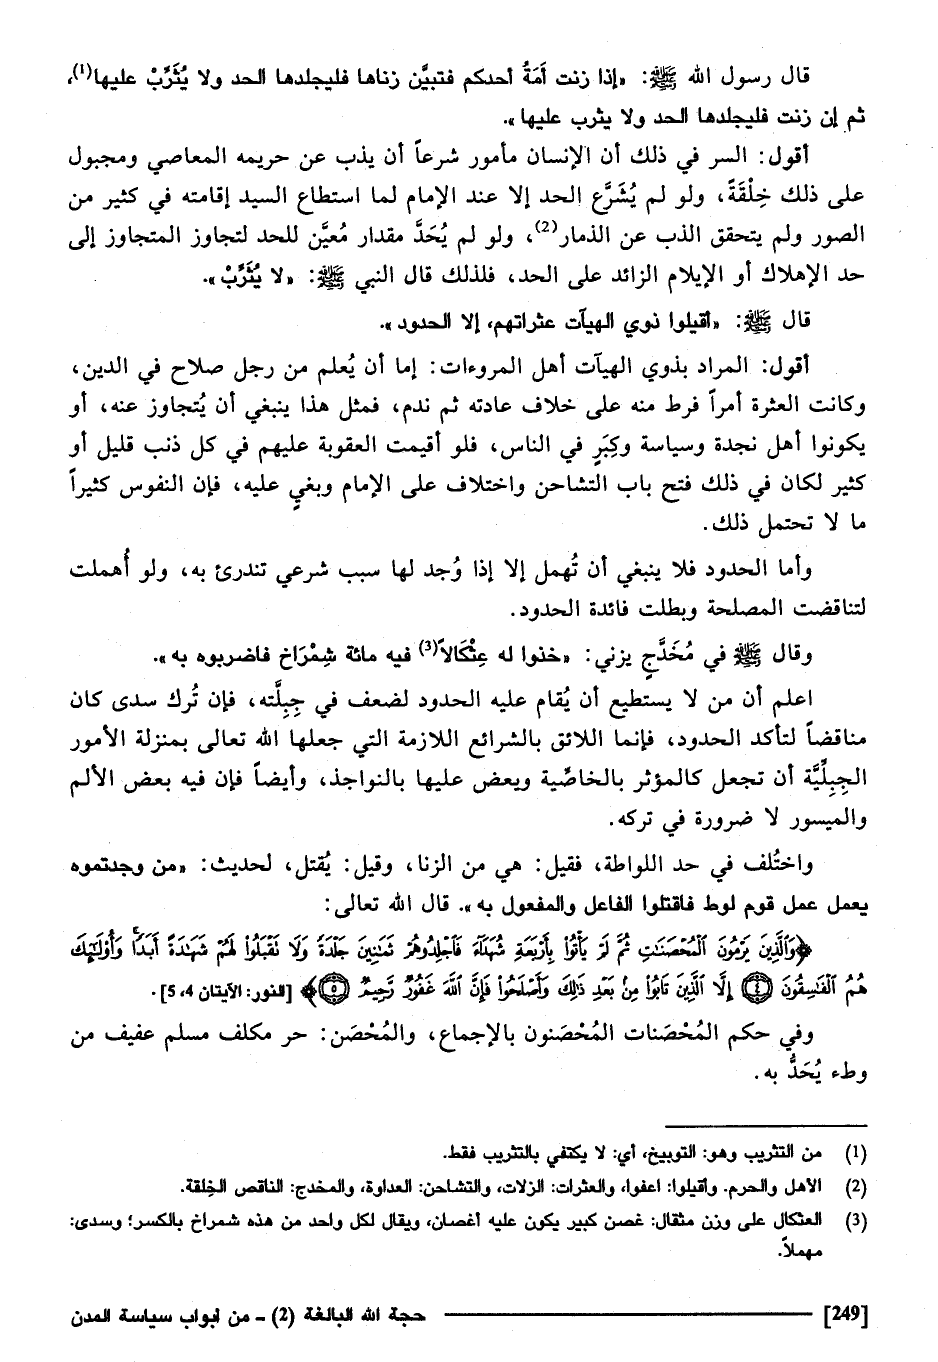 قال رسول الله ﷺ: «إذا زنت أَمَةُ أحدكم فتبيَّن زناها فليجلدها الحد ولا يُثَرِّبْ عليها(1)،
ثم إن زنت فليجلدها الحد ولا يثرب عليها».
أقول: السر في ذلك أن الإنسان مأمور شرعاً أن يذب عن حريمه المعاصي ومجبول
على ذلك خِلْقَةً، ولو لم يُشَرَّع الحد إلا عند الإمام لما استطاع السيد إقامته في كثير من
الصور ولم يتحقق الذب عن الذمار(2)، ولو لم يُحَدَّ مقدار مُعيَّن للحد لتجاوز المتجاوز إلى
حد الإهلاك أو الإيلام الزائد على الحد، فلذلك قال النبي ﷺ: «لا يُثَرِّبْ».
قال ﷺ: «أقيلوا ذوي الهيآت عثراتهم، إلا الحدود».
أقول: المراد بذوي الهيآت أهل المروءات: إما أن يُعلم من رجل صلاح في الدين،
وكانت العثرة أمراً فرط منه على خلاف عادته ثم ندم، فمثل هذا ينبغي أن يُتجاوز عنه، أو
يكونوا أهل نجدة وسياسة وكِبَرٍ في الناس، فلو أقيمت العقوبة عليهم في كل ذنب قليل أو
كثير لكان في ذلك فتح باب التشاحن واختلاف على الإمام وبغيٍ عليه، فإن النفوس كثيراً
ما لا تحتمل ذلك.
وأما الحدود فلا ينبغي أن تُهمل إلا إذا وُجد لها سبب شرعي تندرئ به، ولو أُهملت
لتناقضت المصلحة وبطلت فائدة الحدود.
وقال ﷺ في مُخَدَّجٍ يزني: «خذوا له عِثْكَالاً(3) فيه مائة شِمْرَاخ فاضربوه به».
اعلم أن من لا يستطيع أن يُقام عليه الحدود لضعف في جِبِلَّته، فإن تُرك سدى كان
مناقضاً لتأكد الحدود، فإنما اللائق بالشرائع اللازمة التي جعلها الله تعالى بمنزلة الأمور
الجِبِلِّيَّة أن تجعل كالمؤثر بالخاصِّية ويعض عليها بالنواجذ، وأيضاً فإن فيه بعض الألم
والميسور لا ضرورة في تركه.
واختُلف في حد اللواطة، فقيل: هي من الزنا، وقيل: يُقتل، لحديث: «من وجدتموه
يعمل عمل قوم لوط فاقتلوا الفاعل والمفعول به». قال الله تعالى:
﴿وَٱلَّذِينَ يَرْمُونَ ٱلْمُحْصَنَٰتِ ثُمَّ لَمْ يَأْتُوا۟ بِأَرْبَعَةِ شُهَدَآءَ فَٱجْلِدُوهُمْ ثَمَٰنِينَ جَلْدَةً وَلَا نَقْبَلُوا۟ لَهُمْ شَهَٰدَةً أَبَدًا ۚ وَأُو۟لَٰٓئِكَ
هُمُ ٱلْفَٰسِقُونَ ﴿٤﴾ إِلَّا ٱلَّذِينَ تَابُوا۟ مِنۢ بَعْدِ ذَٰلِكَ وَأَصْلَحُوا۟ فَإِنَّ ٱللَّهَ غَفُورٌ رَّحِيمٌ ﴿٥﴾﴾ [النور: الآيتان 4، 5].
وفي حكم المُحْصَنات المُحْصَنون بالإجماع، والمُحْصَن: حر مكلف مسلم عفيف من
وطء يُحَدُّ به.
(1) من التثريب وهو: التوبيخ، أي: لا يكتفي بالتثريب فقط.
(2) الأهل والحرم. وأقيلوا: اعفوا، والعثرات: الزلات، والتشاحن: العداوة، والمخدج: الناقص الخِلقة.
(3) العثكال على وزن مثقال: غصن كبير يكون عليه أغصان، ويقال لكل واحد من هذه شمراخ بالكسر؛ وسدى:
مهملاً.
[249] حجة الله البالغة (2) - من أبواب سياسة المدن